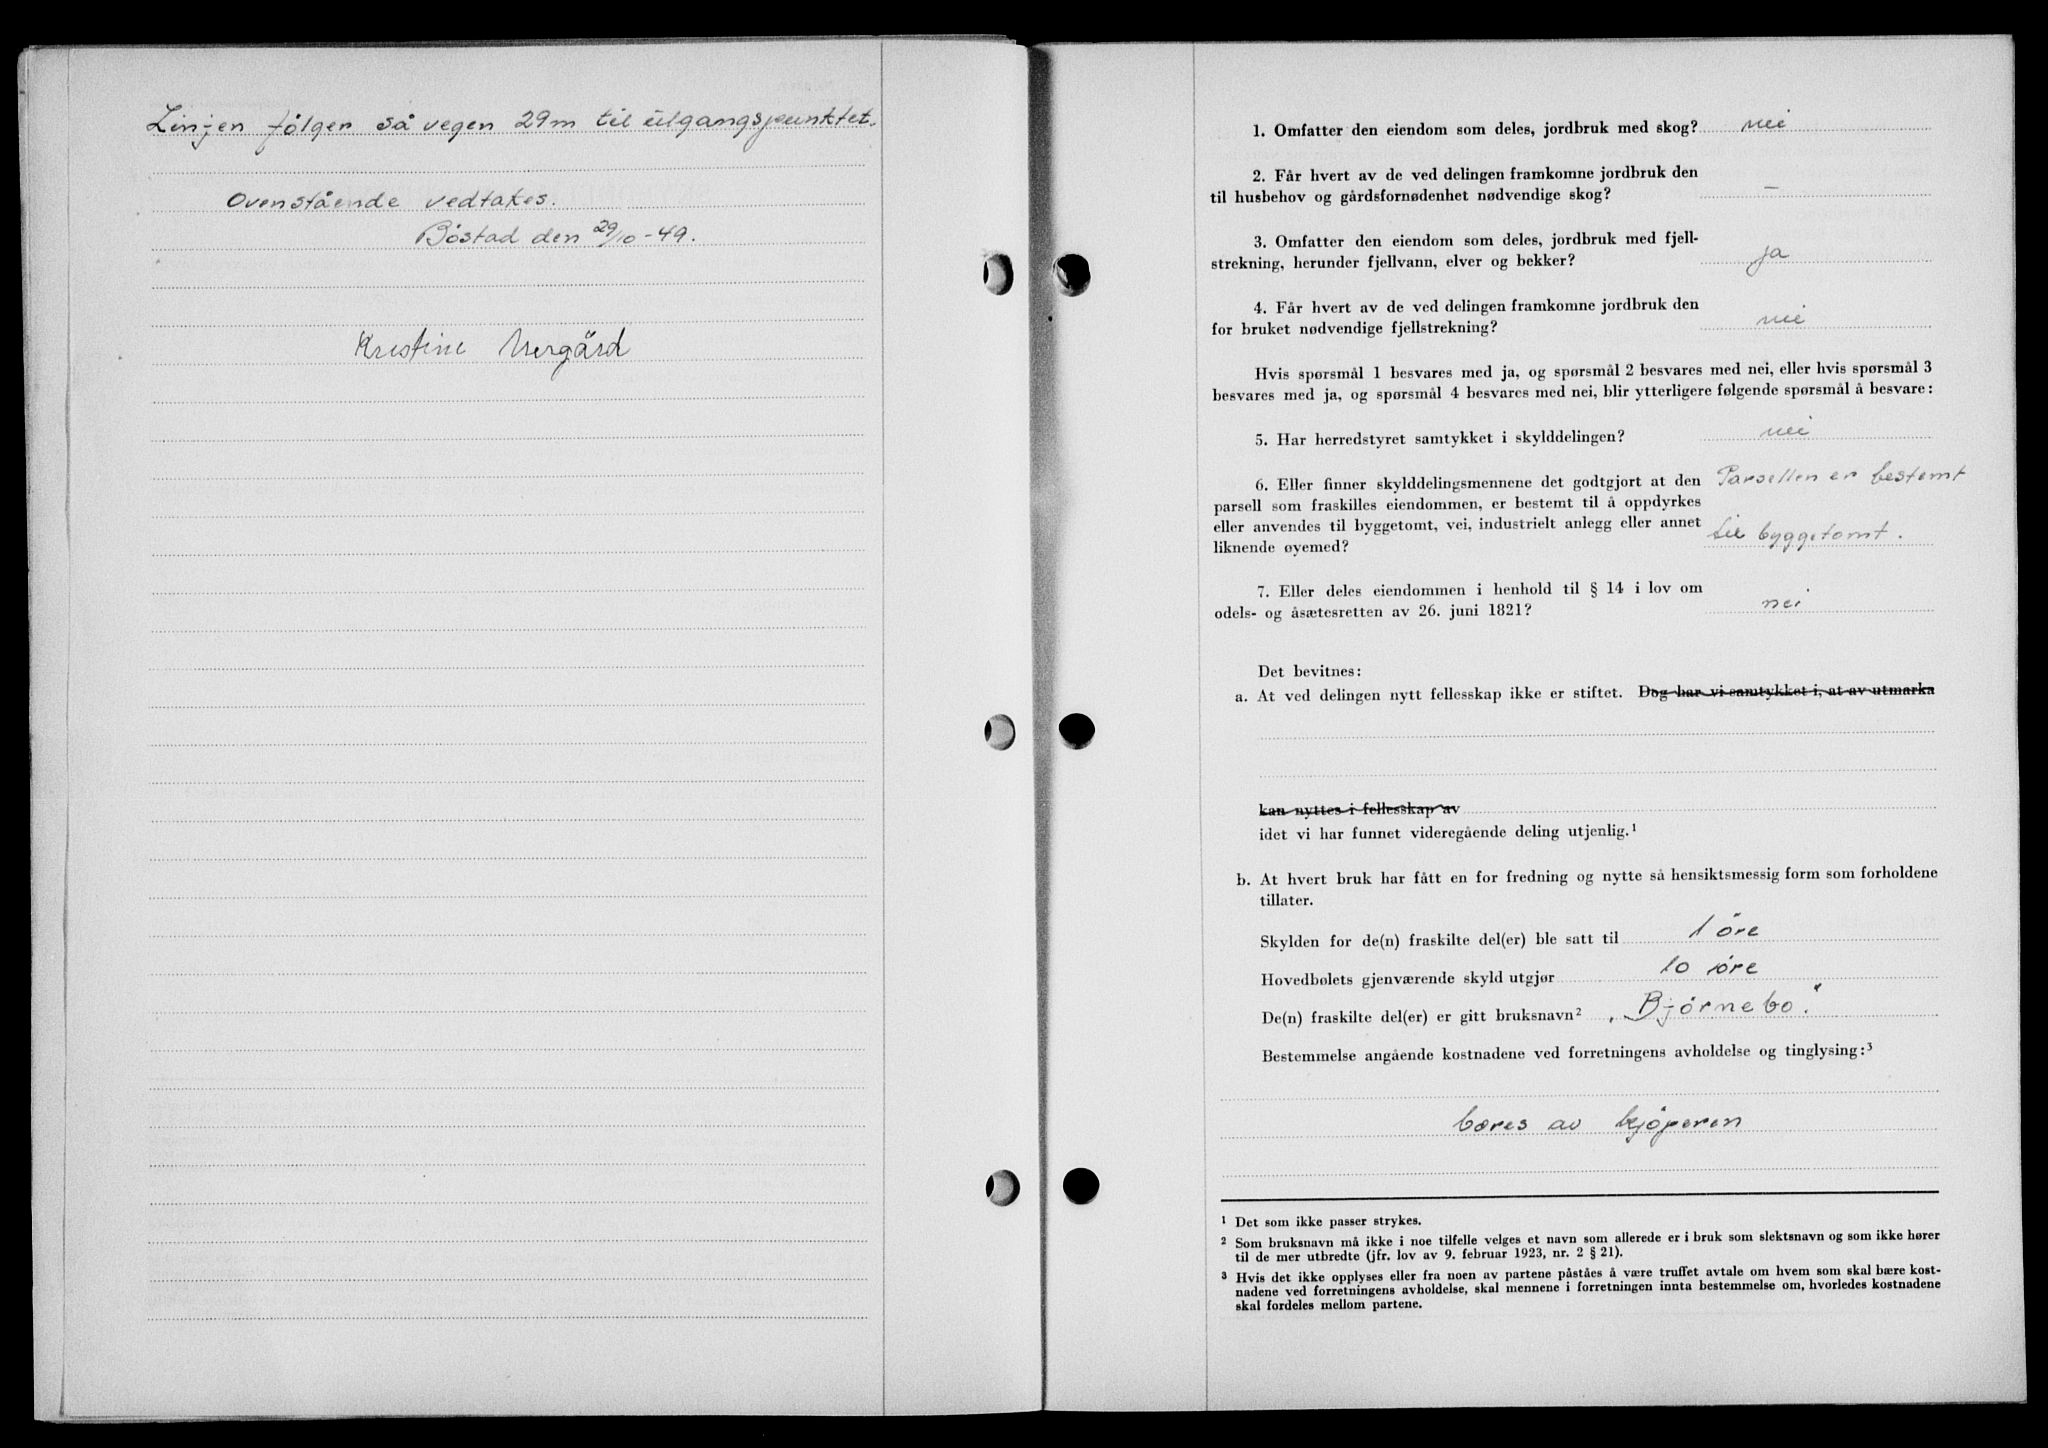 Linjen følger så vegen 29m til utgangspunktet.
Ovenstående vedtakes.
Bøstad den 29/10-49.
Kristine
1. Omfatter den eiendom som deles, jordbruk med skog? nei
2. Får hvert av de ved delingen framkomne jordbruk den
til husbehov og gårdsfornødenhet nødvendige skog? –
3. Omfatter den eiendom som deles, jordbruk med fjell-
strekning, herunder fjellvann, elver og bekker? ja
4. Får hvert av de ved delingen framkomne jordbruk den
for bruket nødvendige fjellstrekning? nei
Hvis spørsmål 1 besvares med ja, og spørsmål 2 besvares med nei, eller hvis spørsmål 3
besvares med ja, og spørsmål 4 besvares med nei, blir ytterligere følgende spørsmål å besvare:
5. Har herredstyret samtykket i skylddelingen? nei
6. Eller finner skylddelingsmennene det godtgjort at den Parsellen er bestemt
parsell som fraskilles eiendommen, er bestemt til å oppdyrkes
eller anvendes til byggetomt, vei, industrielt anlegg eller annet til byggetomt.
liknende øyemed?
7. Eller deles eiendommen i henhold til § 14 i lov om
odels- og åsætesretten av 26. juni 1821? nei
Det bevitnes:
a. At ved delingen nytt fellesskap ikke er stiftet. Dog har vi samtykket i, at av utmarka
kan nyttes i fellesskap av
idet vi har funnet videregående deling utjenlig.¹
b. At hvert bruk har fått en for fredning og nytte så hensiktsmessig form som forholdene
tillater.
Skylden for de(n) fraskilte del(er) ble satt til 1 øre
Hovedbølets gjenværende skyld utgjør 10 øre
De(n) fraskilte del(er) er gitt bruksnavn² „Bjørnebo".
Bestemmelse angående kostnadene ved forretningens avholdelse og tinglysing:³
bæres av kjøperen
¹ Det som ikke passer strykes.
² Som bruksnavn må ikke i noe tilfelle velges et navn som allerede er i bruk som slektsnavn og som ikke hører
til de mer utbredte (jfr. lov av 9. februar 1923, nr. 2 § 21).
³ Hvis det ikke opplyses eller fra noen av partene påståes å være truffet avtale om hvem som skal bære kost-
nadene ved forretningens avholdelse, skal mennene i forretningen innta bestemmelse om, hvorledes kostnadene
skal fordeles mellom partene.